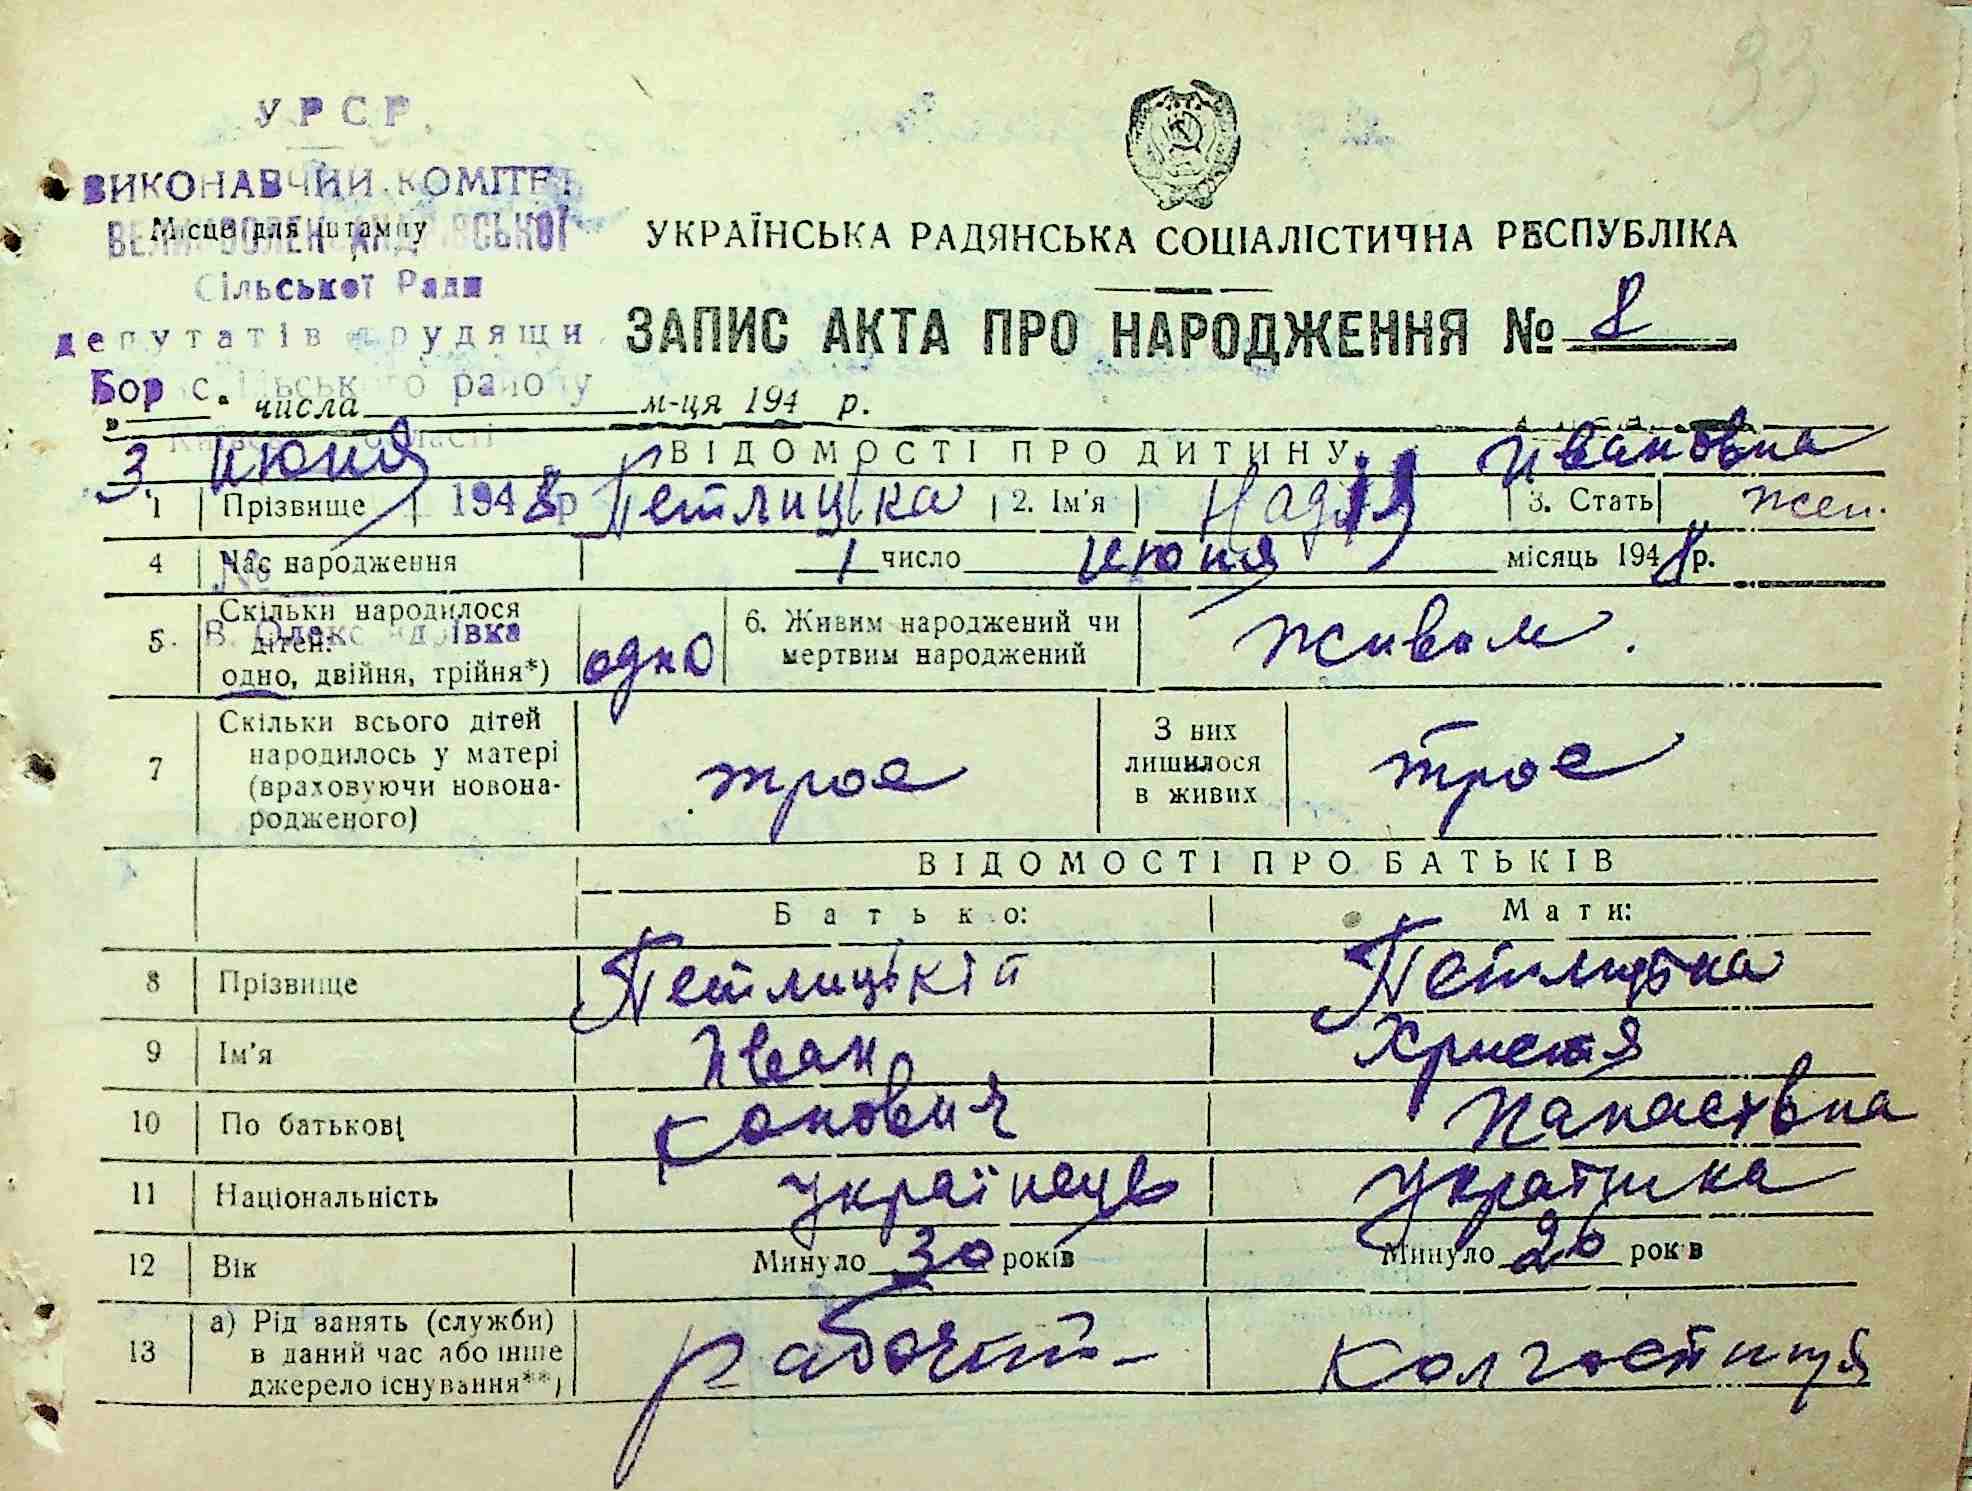 33
УРСР
ВИКОНАВЧИЙ КОМІТЕТ
Місце для штампу
ВЕЛИКООЛЕКСАНДРІВСЬКОЇ
Сільської Ради
депутатів трудящи
Бориспільського району
Київської області
УКРАЇНСЬКА РАДЯНСЬКА СОЦІАЛІСТИЧНА РЕСПУБЛІКА
ЗАПИС АКТА ПРО НАРОДЖЕННЯ № 8
„ числа м-ця 194 р.
3 июня 1948 р
№
В. Олександрівка
ВІДОМОСТІ ПРО ДИТИНУ
Ивановна
1 Прізвище Петлицка 2. Ім'я Надія 3. Стать жен.
4 Час народження 1 число июня місяць 1948 р.
5 Скільки народилося дітей: одно, двійня, трійня*) одно 6. Живим народжений чи мертвим народжений живим.
7 Скільки всього дітей народилось у матері (враховуючи новонародженого) трое З них лишилося в живих трое
ВІДОМОСТІ ПРО БАТЬКІВ
Батько: Мати:
8 Прізвище Петлицькій Петлицька
9 Ім'я Иван Христя
10 По батькові Конович Панасівна
11 Національність українець Українка
12 Вік Минуло 30 років Минуло 26 років
13 а) Рід занять (служби) в даний час або інше джерело існування**) рабочій Колгостиця